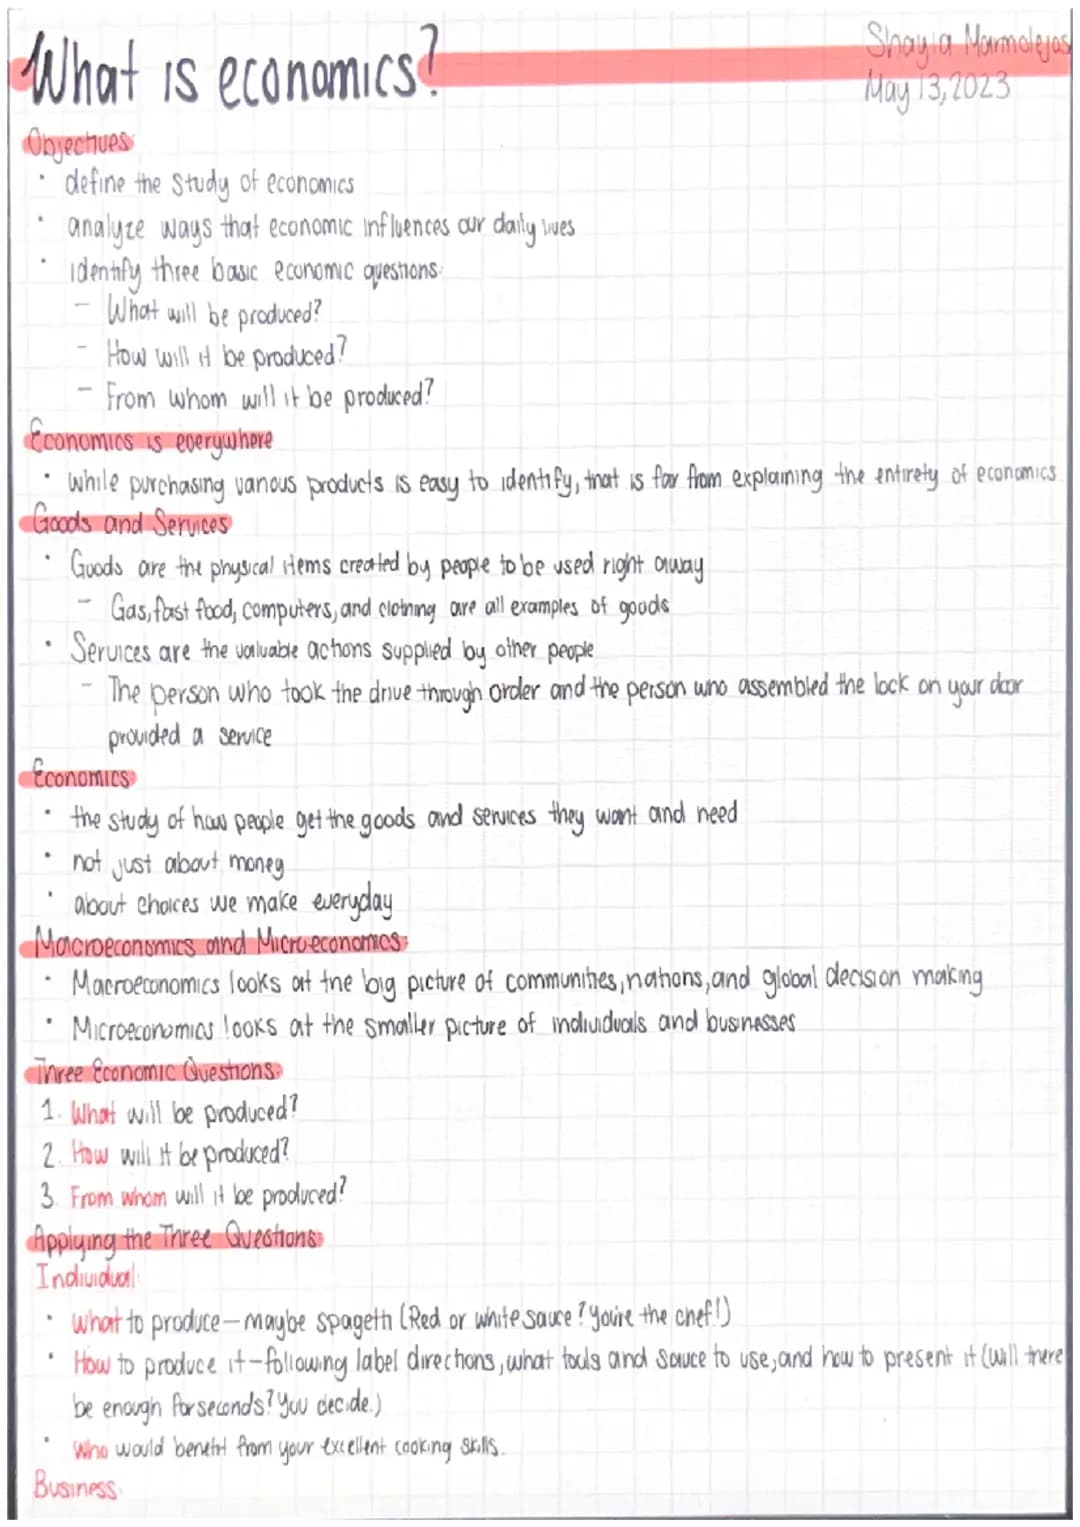 What is economics?
Shayla Marmolejos
May 13, 2023
Objectives:
• define the study of economics
• analyze ways that economic influences our daily lives
• identify three basic economic questions:
- What will be produced?
- How will it be produced?
- From whom will it be produced?
Economics is everywhere
• while purchasing various products is easy to identify, that is far from explaining the entirety of economics
Goods and Services
• Goods are the physical items created by people to be used right away
- Gas, fast food, computers, and clothing are all examples of goods
• Services are the valuable actions supplied by other people
- The person who took the drive through order and the person who assembled the lock on your door
provided a service
Economics
• the study of how people get the goods and services they want and need
• not just about money
• about choices we make everyday
Macroeconomics and Microeconomics
• Macroeconomics looks at the big picture of communities, nations, and global decision making
• Microeconomics looks at the smaller picture of individuals and businesses
Three Economic Questions
1. What will be produced?
2. How will it be produced?
3. From whom will it be produced?
Applying the Three Questions
Individual
• What to produce - maybe spagetti (Red or white sauce? You're the chef!)
• How to produce it - following label directions, what tools and sauce to use, and how to present it (will there
be enough for seconds? You decide.)
• Who would benefit from your excellent cooking skills.
Business